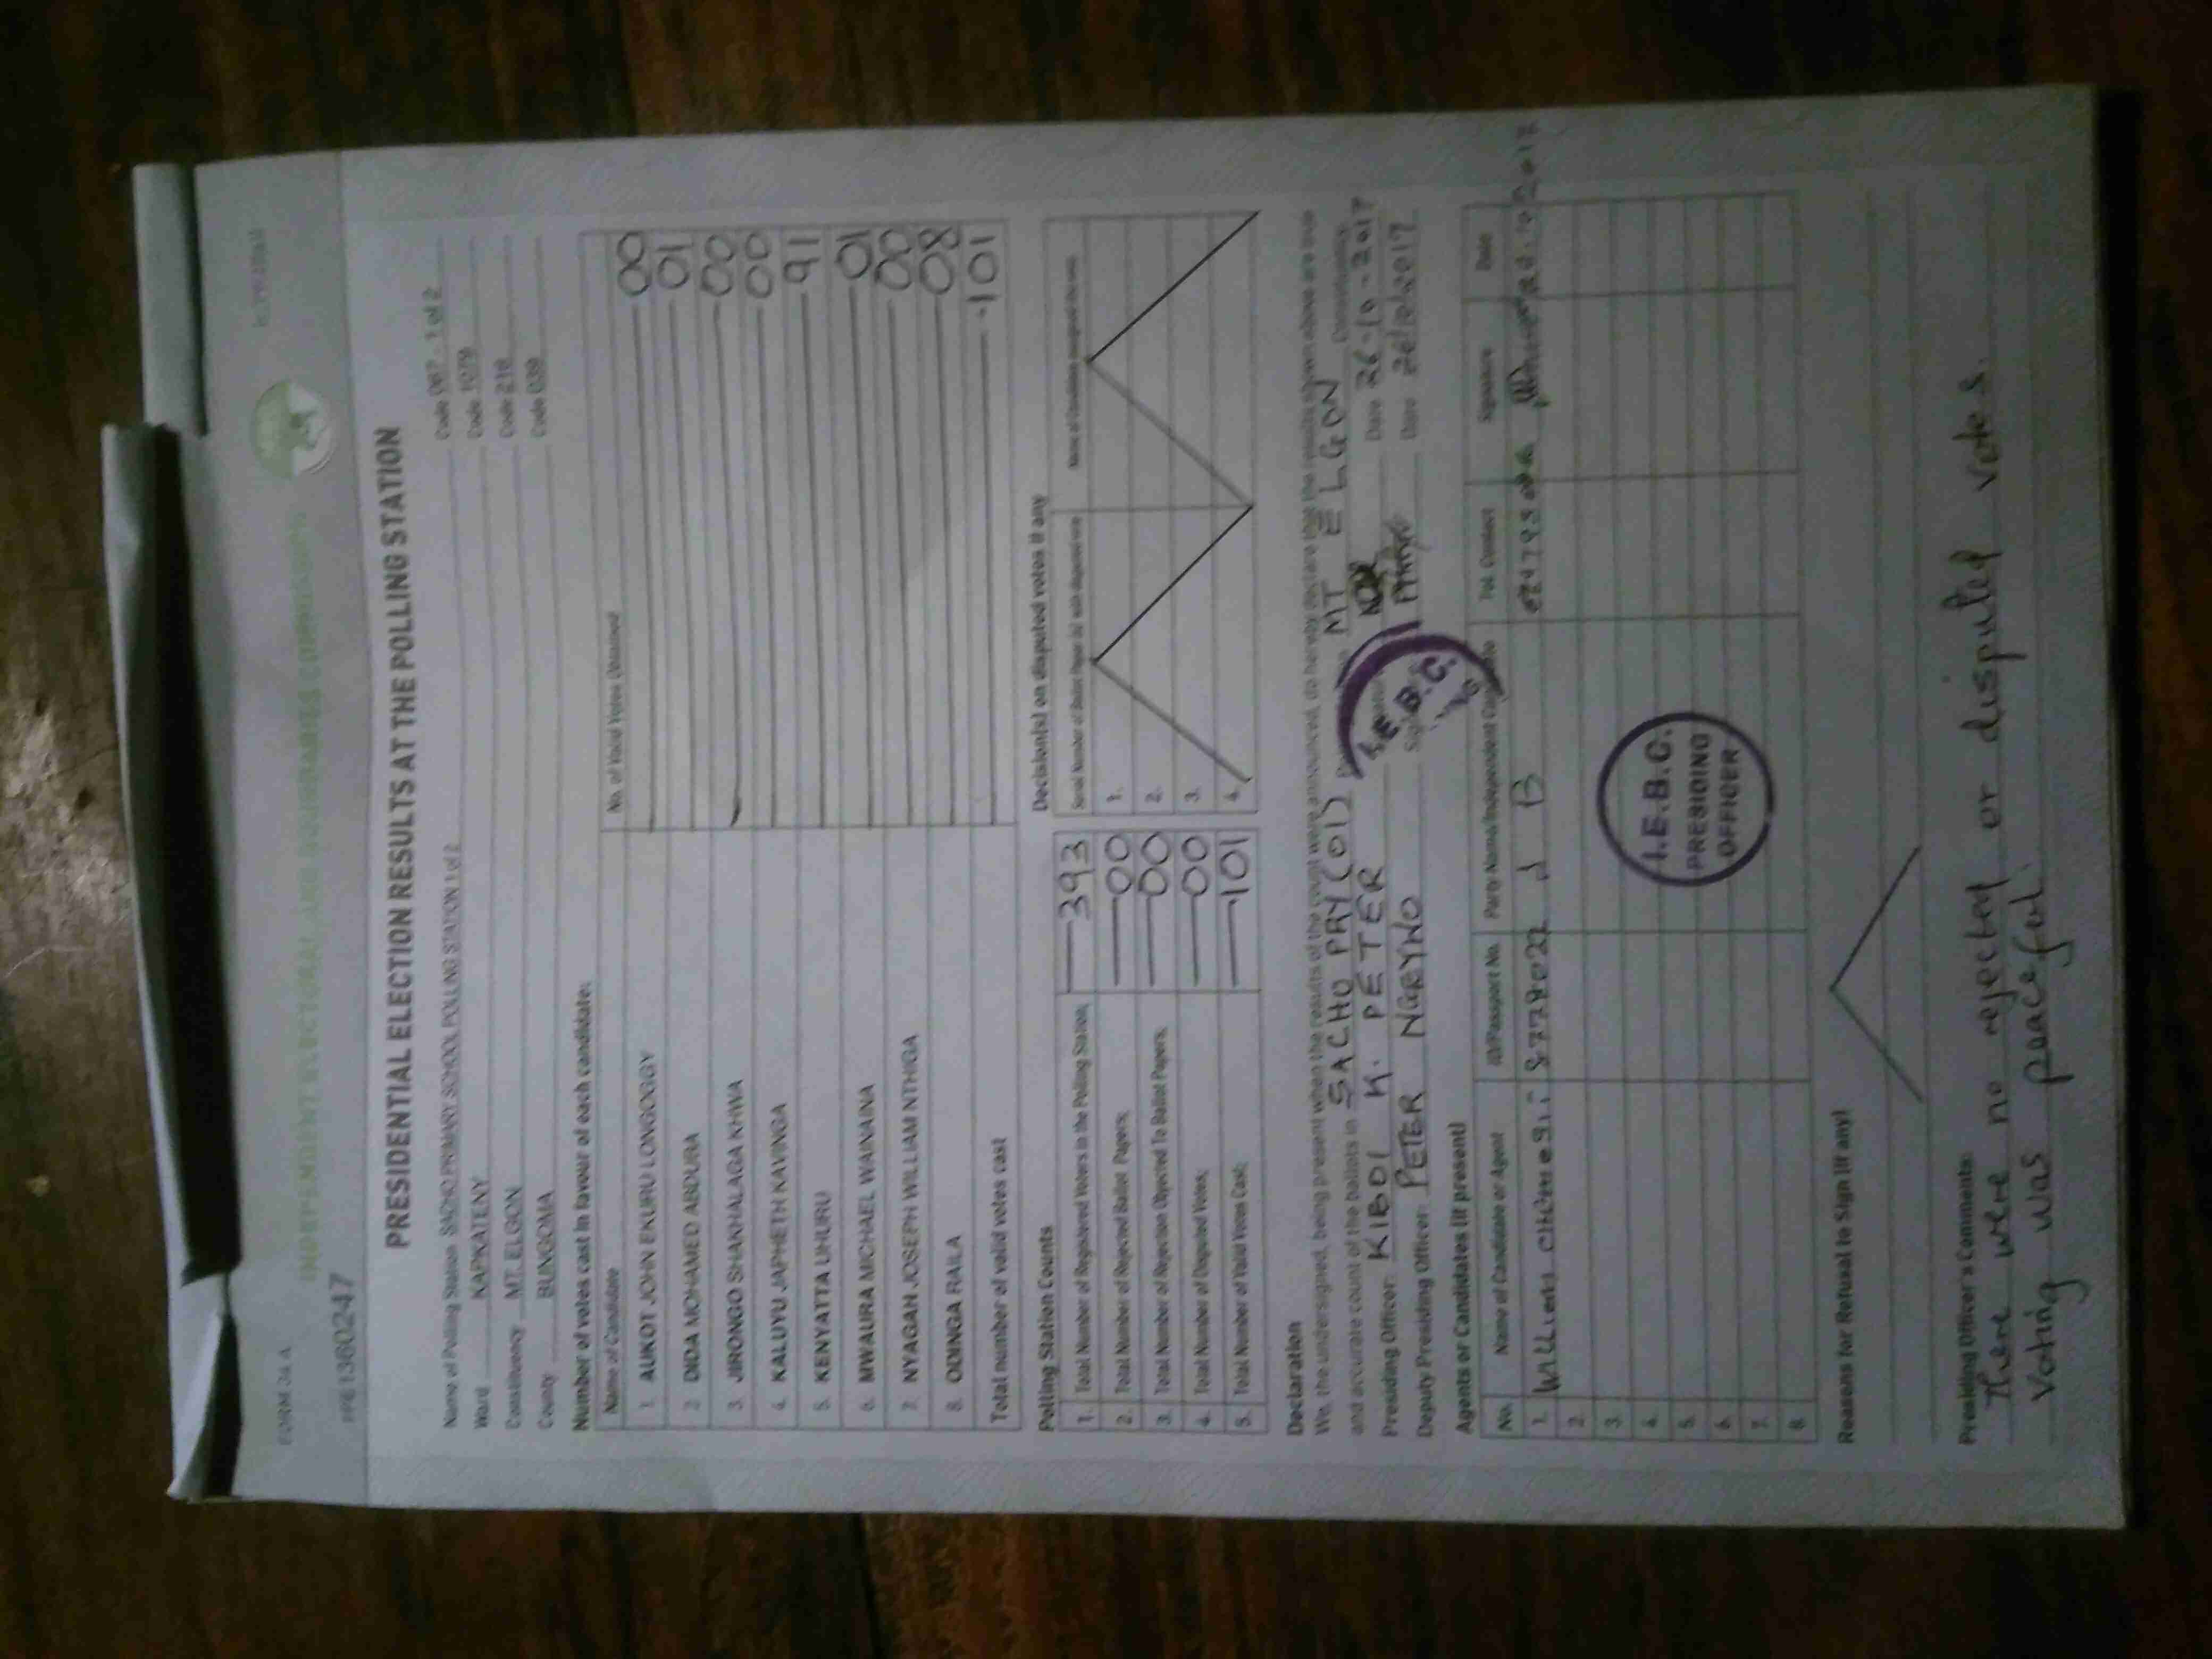 FORM 34 A
INDEPENDENT ELECTORAL AND BOUNDARIES COMMISSION
PRESIDENTIAL ELECTION RESULTS AT THE POLLING STATION
Name of Polling Station SACHO PRIMARY SCHOOL POLLING STATION 1 of 2 Code 087 - 1 of 2
Ward KAPKATENY Code 1079
Constituency MT. ELGON Code 218
County BUNGOMA Code 039
Number of votes cast in favour of each candidate:
Name of Candidate No. of Valid Votes Obtained
1. AUKOT JOHN EKURU LONGOGGY 00
2. DIDA MOHAMED ABDUBA 01
3. JIRONGO SHAKHALAGA KHWA 00
4. KALUYU JAPHETH KAVINGA 00
5. KENYATTA UHURU 91
6. MWAURA MICHAEL WAINAINA 01
7. NYAGAH JOSEPH WILLIAM NTHIGA 00
8. ODINGA RAILA 08
Total number of valid votes cast 101
Polling Station Counts
1. Total Number of Registered Voters in the Polling Station; 393
2. Total Number of Rejected Ballot Papers; 00
3. Total Number of Rejection Objected To Ballot Papers; 00
4. Total Number of Disputed Votes; 00
5. Total Number of Valid Votes Cast; 101
Decision(s) on disputed votes if any
1.
2.
3.
4.
Declaration
We, the undersigned, being present when the results of the count were announced, do hereby declare that the results shown above are true
and accurate count of the ballots in SACHO PRY (01) MT ELGON Constituency
Presiding Officer: KIBOI K. PETER Date 26-10-2017
Deputy Presiding Officer: PETER Date
I.E.B.C.
Agents or Candidates (if present)
No. Name of Candidate or Agent ID/Passport No. Party Name/Independent Tel. Contact Signature Date
1. William
2.
3.
4.
5.
6.
7.
8.
I.E.B.C.
PRESIDING
OFFICER
Reasons for Refusal to Sign (if any)
Presiding Officer's Comments:
There were no rejected or disputed votes.
Voting was peaceful.